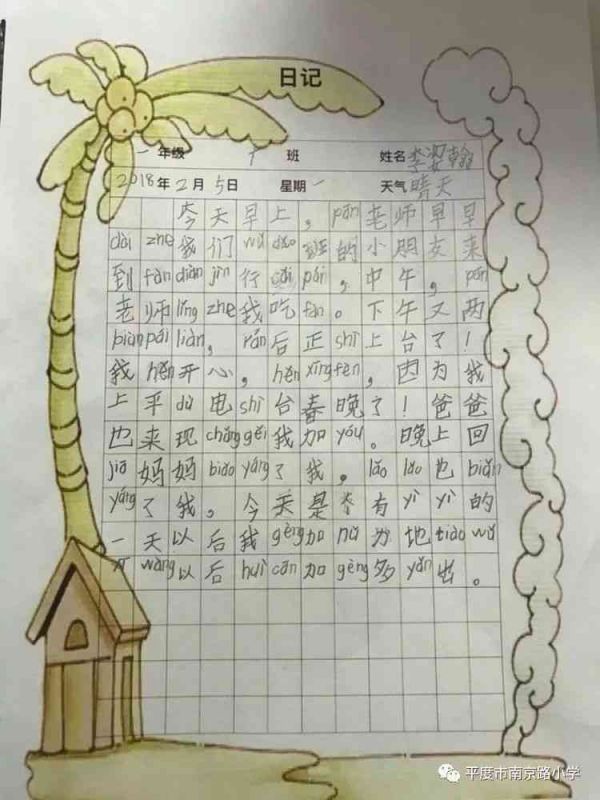 日记
一年级 1 班 姓名 李姿翰
2018年2月5日 星期一 天气 晴天
今天早上，pān老师早早
dài zhe我们wǔ dǎo班的小朋友来
到fàn diàn jìn行cǎi pái，中午，pān
老师lǐng zhe我吃fàn。下午又两
biàn pǎi liàn，rán后正shì上台了！
我hěn开心，hěn xīng fèn，因为我
上平dù电shì台春晚了！爸爸
也来现chǎng gěi我加yóu。晚上回
jiā妈妈biǎo yáng了我，lǎo lao也biǎn
yáng了我。今天是 有yì yì的
一天以后我gèng加nǔ力地tiào wǔ
 wàng以后huì cān加gèng多yǎn出。
平度市南京路小学